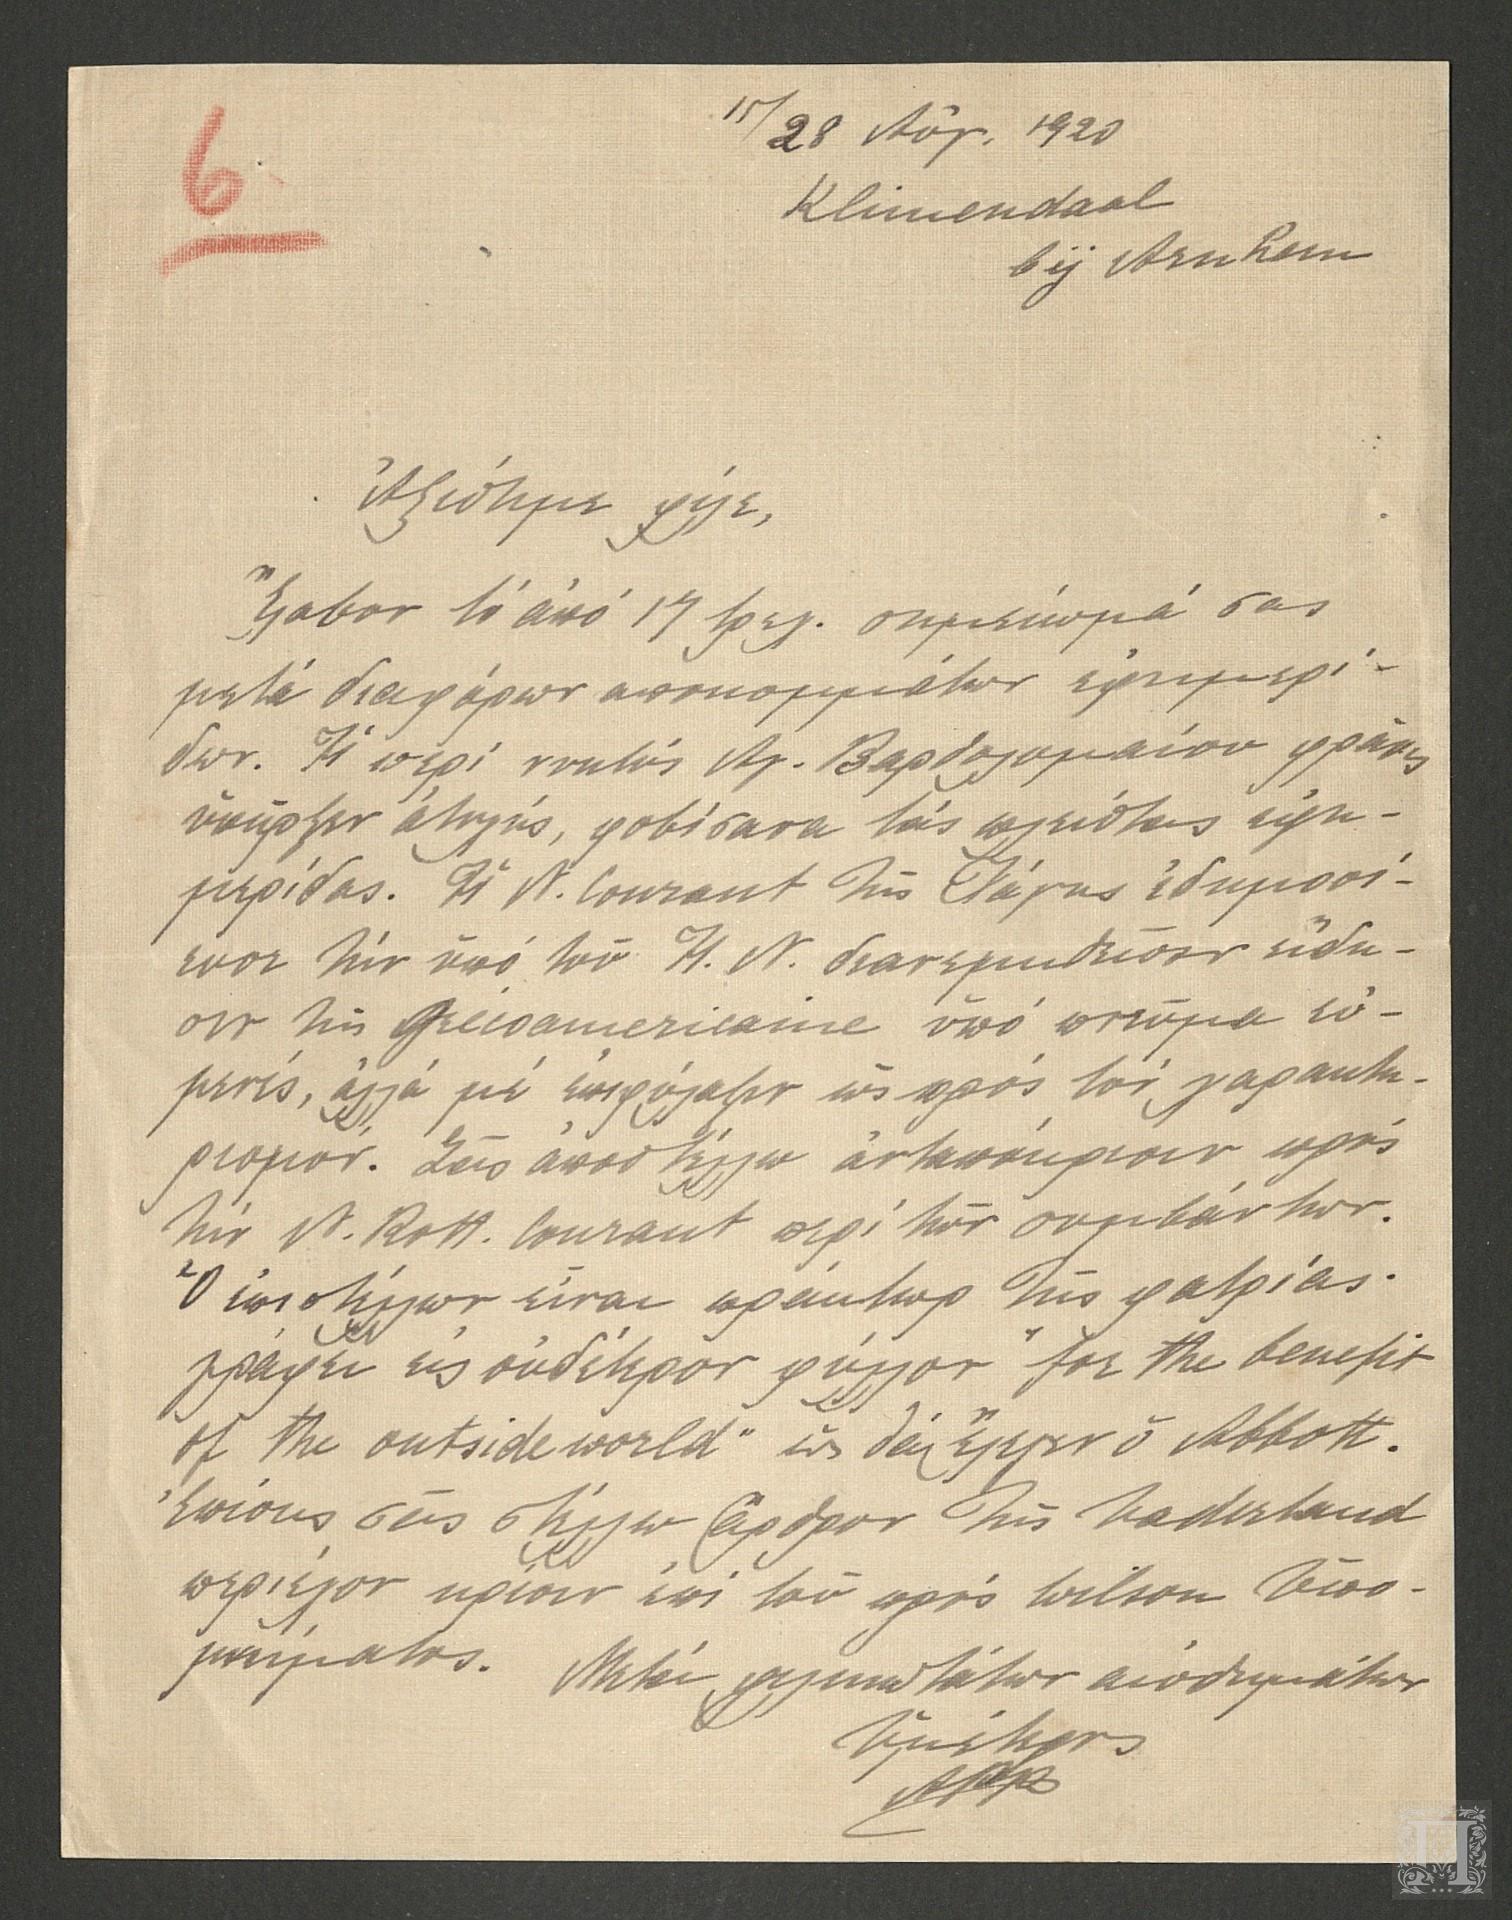 6
15/28 Αὐγ. 1920
Klimendaal
bij Arnhem
Ἀξιότιμε φίλε,
Ἔλαβον τὸ ἀπὸ 17 τρεχ. σημείωμά σας
μετὰ διαφόρων αποκομμάτων ἐφημερί-
δων. Ἡ περὶ νυκτὸς Ἁγ. Βαρθολομαίου φράσις
ὑπῆρξεν ἀτυχής, φοβίσασα τὰς πλείστας ἐφη-
μερίδας. Ἡ N. Courant τῆς Χάγης ἐδημοσί-
ευσε τὴν ὑπὸ τοῦ H. N. διανεμηθεῖσαν εἴδη-
σιν τῆς Grecoamericaine ὑπὸ πνεῦμα εὐ-
μενές, ἀλλὰ μὲ ἐπιφύλαξιν ὡς πρὸς τὸν χαρακτη-
ρισμόν. Σᾶς ἀποστέλλω ἀνταπόκρισιν πρὸς
τὴν N. Rott. Courant περὶ τῶν συμβάντων.
Ὁ ἐπιστέλλων εἶναι πράκτωρ τῆς φατρίας.
γράφει εἰς οὐδέτερον φύλλον "for the benefit
of the outside world" ὡς θὰ ἔλεγεν ὁ Abbott.
Ἐπίσης σᾶς στέλλω ἄρθρον τῆς Vaderland
περιέχον κρίσιν ἐπὶ τοῦ πρὸς Wilson Ὑπο-
μνήματος. Μετὰ φιλικωτάτων αἰσθημάτων
Ὑμέτερος